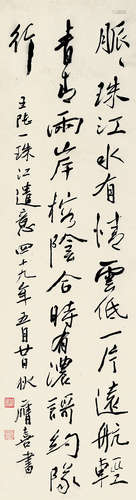 脈々珠江水有情雲低一片遠航輕
青々兩岸榕陰合時有濃謳約隊
行 王陸一珠江遣意 四十九年五月廿日狄膺喜書